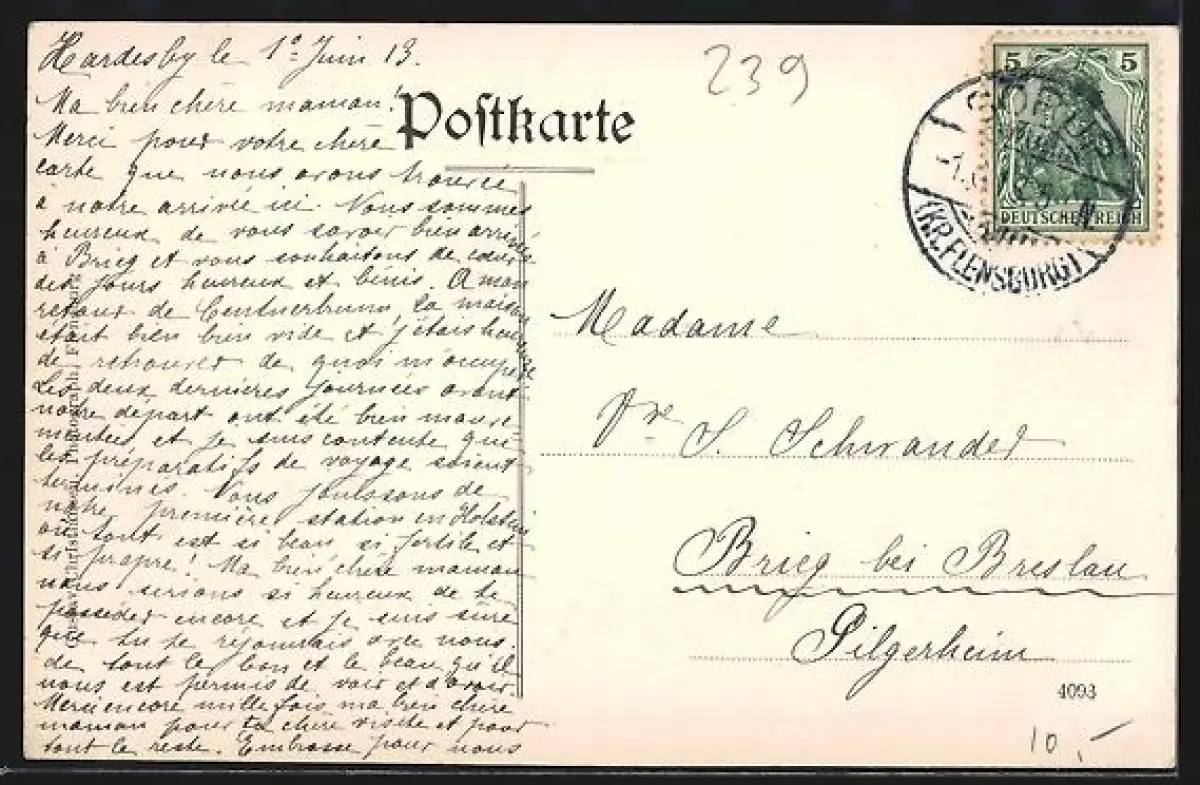 Hardesby le 1º Juin 13.
Ma bien chère maman!
Merci pour votre chère
carte que nous avons trouvée
à notre arrivée ici. Nous sommes
heureux de vous savoir bien arrivée
à Brieg et vous souhaitons de cœur
des jours heureux et bénis. A mon
retour de la maison
était bien bien vide et j'étais heureuse
de retrouver de quoi m'occuper.
Les deux dernières journées avant
notre départ ont été bien mouve-
mentées et je suis contente que
les préparatifs de voyage soient
terminés. Nous jouissons de
notre première station en Holstein
où tout est si beau si fertile et
si propre! Ma bien chère maman
nous serions si heureux de te
posséder encore et je suis sûre
que tu te réjouirais avec nous
de tout le bon et le beau qu'il
nous est permis de voir et d'avoir.
Merci encore mille fois ma bien chère
maman pour ta chère visite et pour
tout le reste. Embrasse pour nous
Postkarte
239
5 5
DEUTSCHES REICH
SÖRUP
(KR. FLENSBURG)
Madame
S. Schwander
Brieg bei Breslau
Pilgerheim
4093
10,-